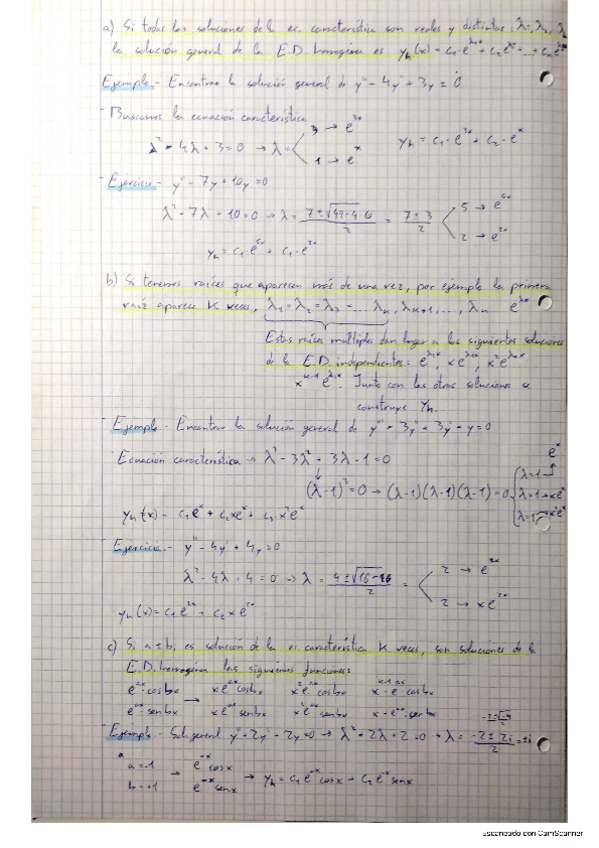 a) Si todas las soluciones de la ec. característica son reales y distintas: λ₁, λ₂, λ
la solución general de la E.D. homogénea es yₕ(x) = c₁·e^λ₁x + c₂e^λ₂x + ... + cₙe^λₙx
Ejemplo.- Encontrar la solución general de y'' - 4y' + 3y = 0.
- Buscamos la ecuación característica
λ² - 4λ + 3 = 0 → λ = 3 → e^3x
1 → e^x
yₕ = c₁·e^3x + c₂·e^x
- Ejercicio.- y'' - 7y' + 10y = 0
λ² - 7λ + 10 = 0 → λ = = (7 ± 3)/2 5 → e^5x
2 → e^2x
yₕ = c₁e^5x + c₁·e^2x
b) Si tenemos raíces que aparecen más de una vez, por ejemplo la primera
raíz aparece K veces, λ₁ = λ₂ = λ₃ = ... λₖ, λₖ₊₁, ..., λₙ e^λ₁x
Estas raíces múltiples dan lugar a las siguientes soluciones
de la E.D. independientes: e^λ₁x, xe^λ₁x, x²e^λ₁x
x^k-1 e^λ₁x. Junto con las otras soluciones se
construye yₕ.
- Ejemplo.- Encontrar la solución general de y''' - 3y'' + 3y' - y = 0
Ecuación característica → λ³ - 3λ² + 3λ - 1 = 0
e^x
(λ-1)³ = 0 → (λ-1)(λ-1)(λ-1) = 0 λ=1
λ=1 → xe^x
λ=1 → x²e^x
yₕ(x) = c₁e^x + c₂xe^x + c₃x²e^x
- Ejercicio.- y'' - 4y' + 4y = 0
λ² - 4λ + 4 = 0 → λ = (4 ± √(16-16))/2 = 2 → e^2x
2 → xe^2x
yₕ(x) = c₁e^2x + c₂xe^2x
c) Si a ± bi es solución de la ec. característica K veces, son soluciones de la
E.D. homogénea las siguientes funciones:
e^ax·cosbx → xe^ax cosbx x²e^ax cosbx x^k-1·e^ax·cosbx
e^ax·senbx xe^ax senbx x²e^ax senbx x^k-1·e^ax·senbx
- Ejemplo.- Sol. general y'' + 2y' + 2y = 0 → λ² + 2λ + 2 = 0 → λ = (-2 ± 2i)/2
a = -1 → e^-x cosx
b = +1 e^-x senx → yₕ = c₁e^-x cosx + c₂e^-x senx
Escaneado con CamScanner